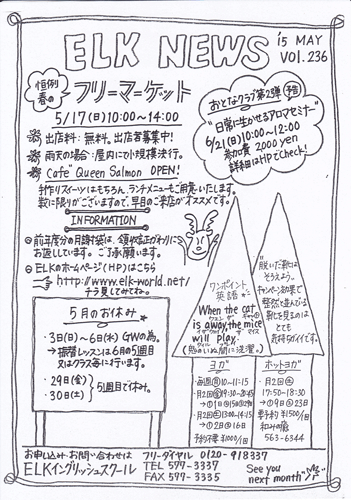 ELK NEWS
'15 MAY
VOL.236
恒例
春の
フリーマーケット
5/17(日)10:00~14:00
おとなクラブ第2弾 予告
"日常に生かせるアロマセミナー"
6/21(日)10:00~12:00
参加費 2000yen
詳細はHPでCheck!
出店料：無料。出店者募集中！
雨天の場合：屋内にて小規模決行。
Cafe "Queen Salmon" OPEN!
手作りスイーツはもちろん、ランチメニューもご用意いたします。
数に限りがございますので、早目のご来店がオススメです。
INFORMATION
前年度分の月謝袋は、領収証の代わりに
お返しいたします。ご了承願います。
ELKのホームページ(HP)はこちら
http://www.elk-world.net/
チラ見してみてね。
ワンポイント
英語
When the cat
is away, the mice
will play.
(鬼のいぬ間に洗濯。)
"脱いだ靴は
そろえよう。"
キャンペーン効果で
整然と並んでいる
靴を見るのは
とても
気持ちがイイです。
5月のお休み
・3日(日)~6日(水) GWの為。
→振替レッスンは6月の5週目
又はクラス毎に行います。
・29日(金)
・30日(土)
5週目で休み。
ヨガ
毎週月 10-11:15
月2回金 19:30-20:45
月2回土 13:00-14:15
→2日と16日
予約不要 ¥1000/1回
ホットヨガ
月2回土
17:50-18:30
→9日と23日
要予約 ¥1500/1回
和みの風
563-6344
お申し込み・お問い合わせは フリーダイヤル 0120-918337
ELKイングリッシュスクール
TEL 577-3337
FAX 577-3335
See you
next month